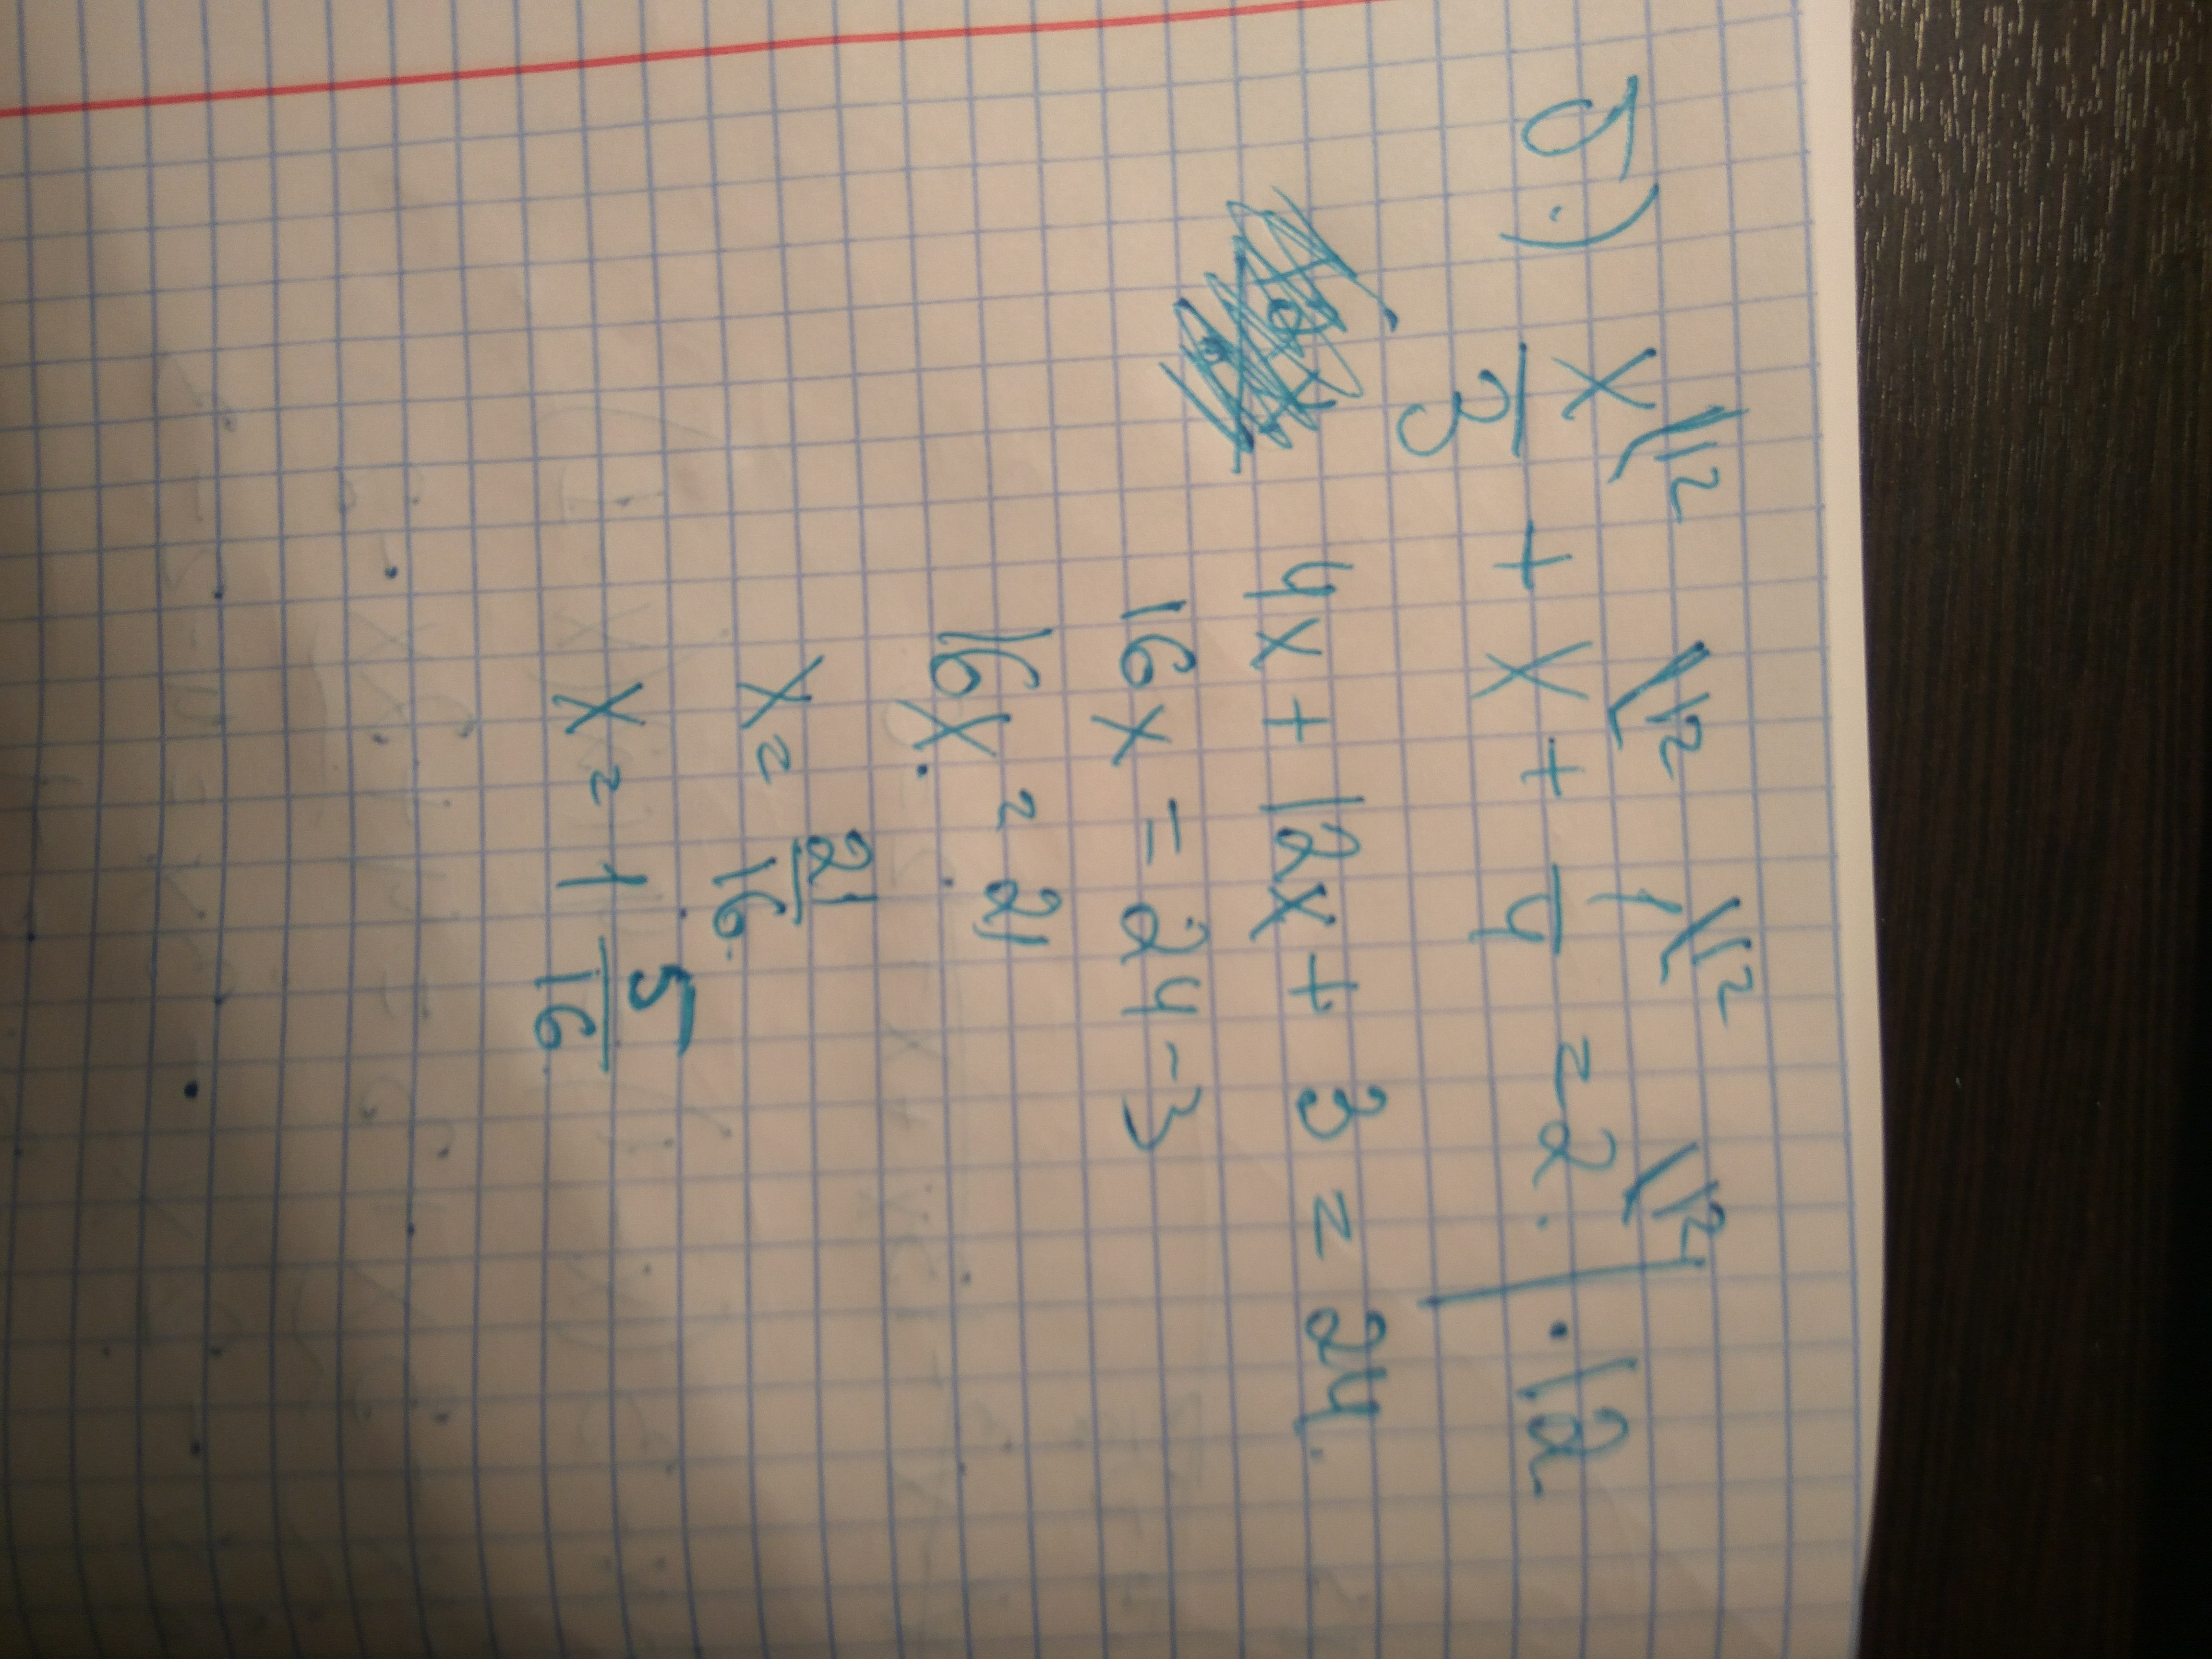 б.) x\12/3 + x\12 + 1\12/4 = 2.\12 | · 12
4x + 12x + 3 = 24.
16x = 24 - 3
16x = 21
x = 21/16.
x = 1 5/16